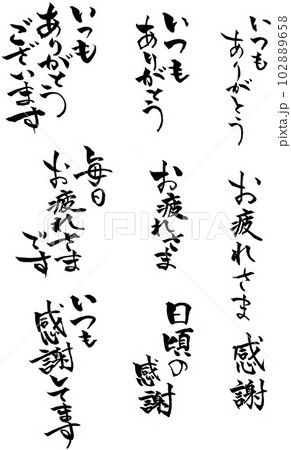 いつも
ありがとう
いつも
ありがとう
いつも
ありがとう
ございます
お疲れさま
お疲れさま
毎日
お疲れさま
です
感謝
日頃の
感謝
いつも
感謝してます
PIXTA
pixta.jp - 102889658